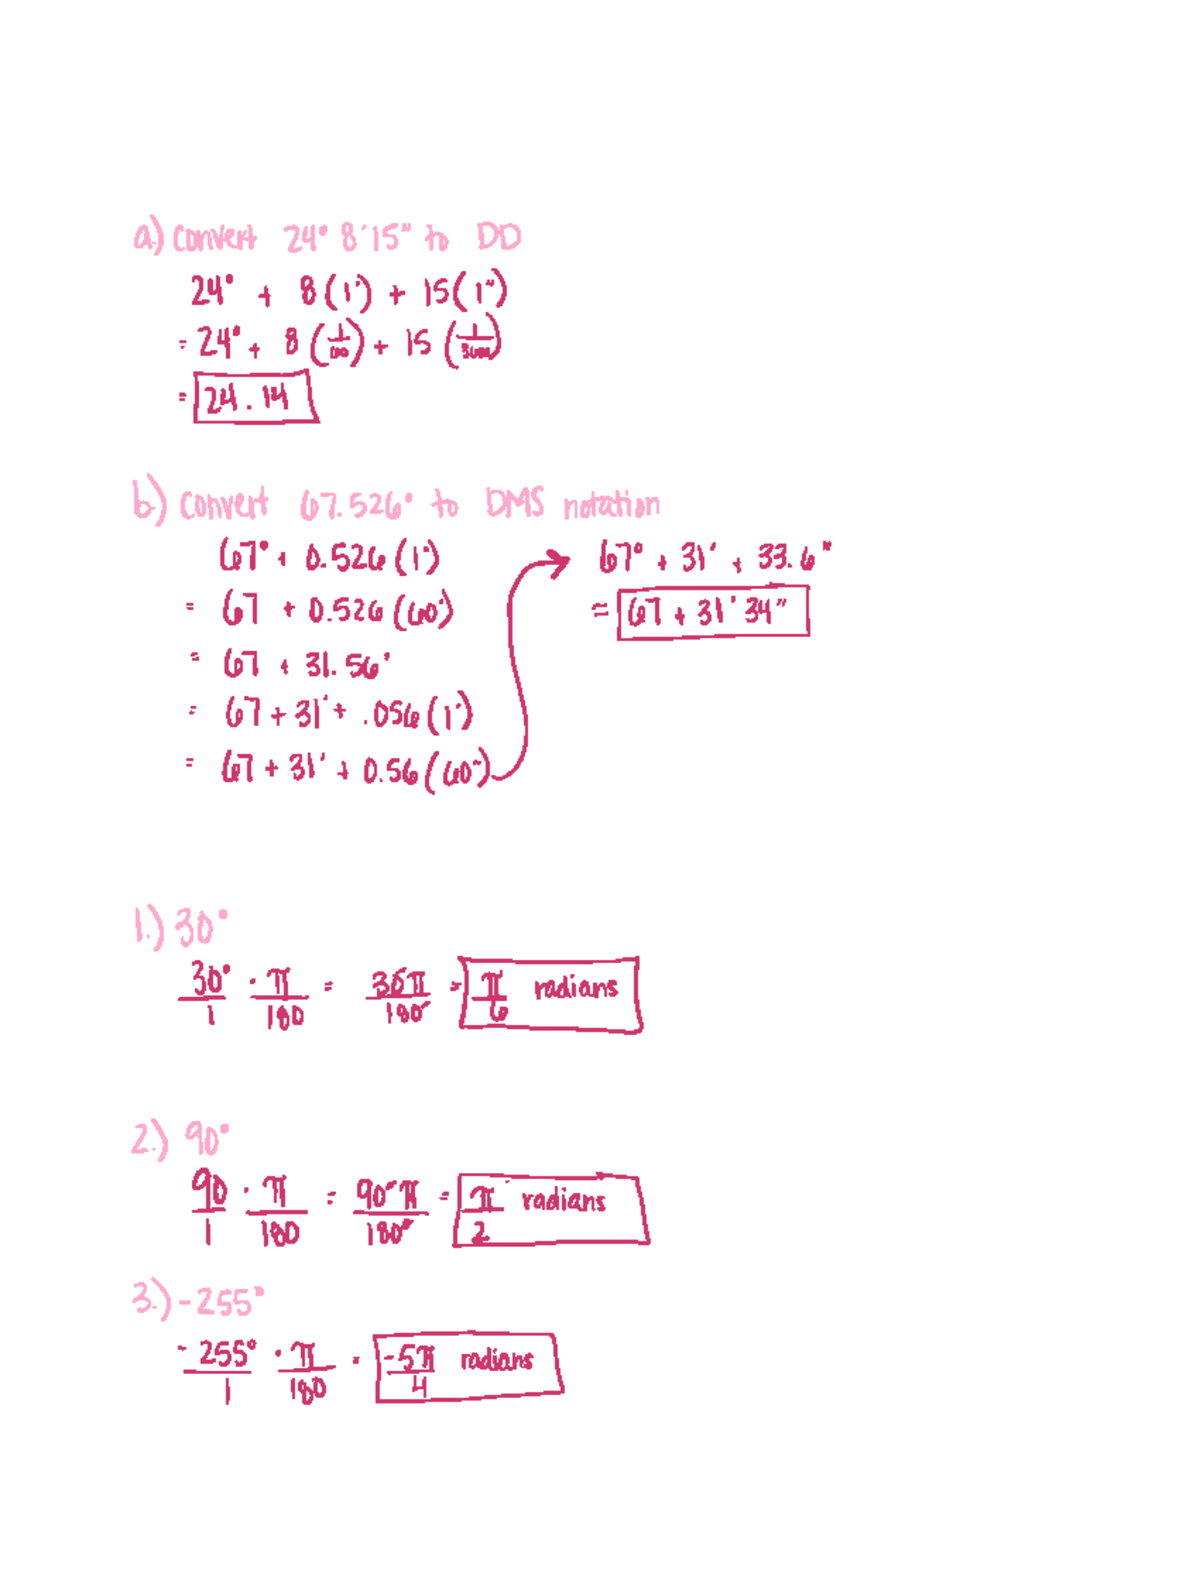 a.) Convert 24° 8'15" to DD
24° + 8(1') + 15(1")
= 24° + 8(1/60) + 15(1/3600)
= 24.14
b.) Convert 67.526° to DMS notation
67° + 0.526(1°)
= 67 + 0.526(60')
= 67 + 31.56'
= 67 + 31' + .056(1')
= 67 + 31' + 0.56(60")
67° + 31' + 33.6"
= 67 + 31' 34"
1.) 30°
30°/1 · π/180 = 30°π/180° = π/6 radians
2.) 90°
90/1 · π/180 = 90°π/180° = π/2 radians
3.) -255°
-255°/1 · π/180 = -5π/4 radians